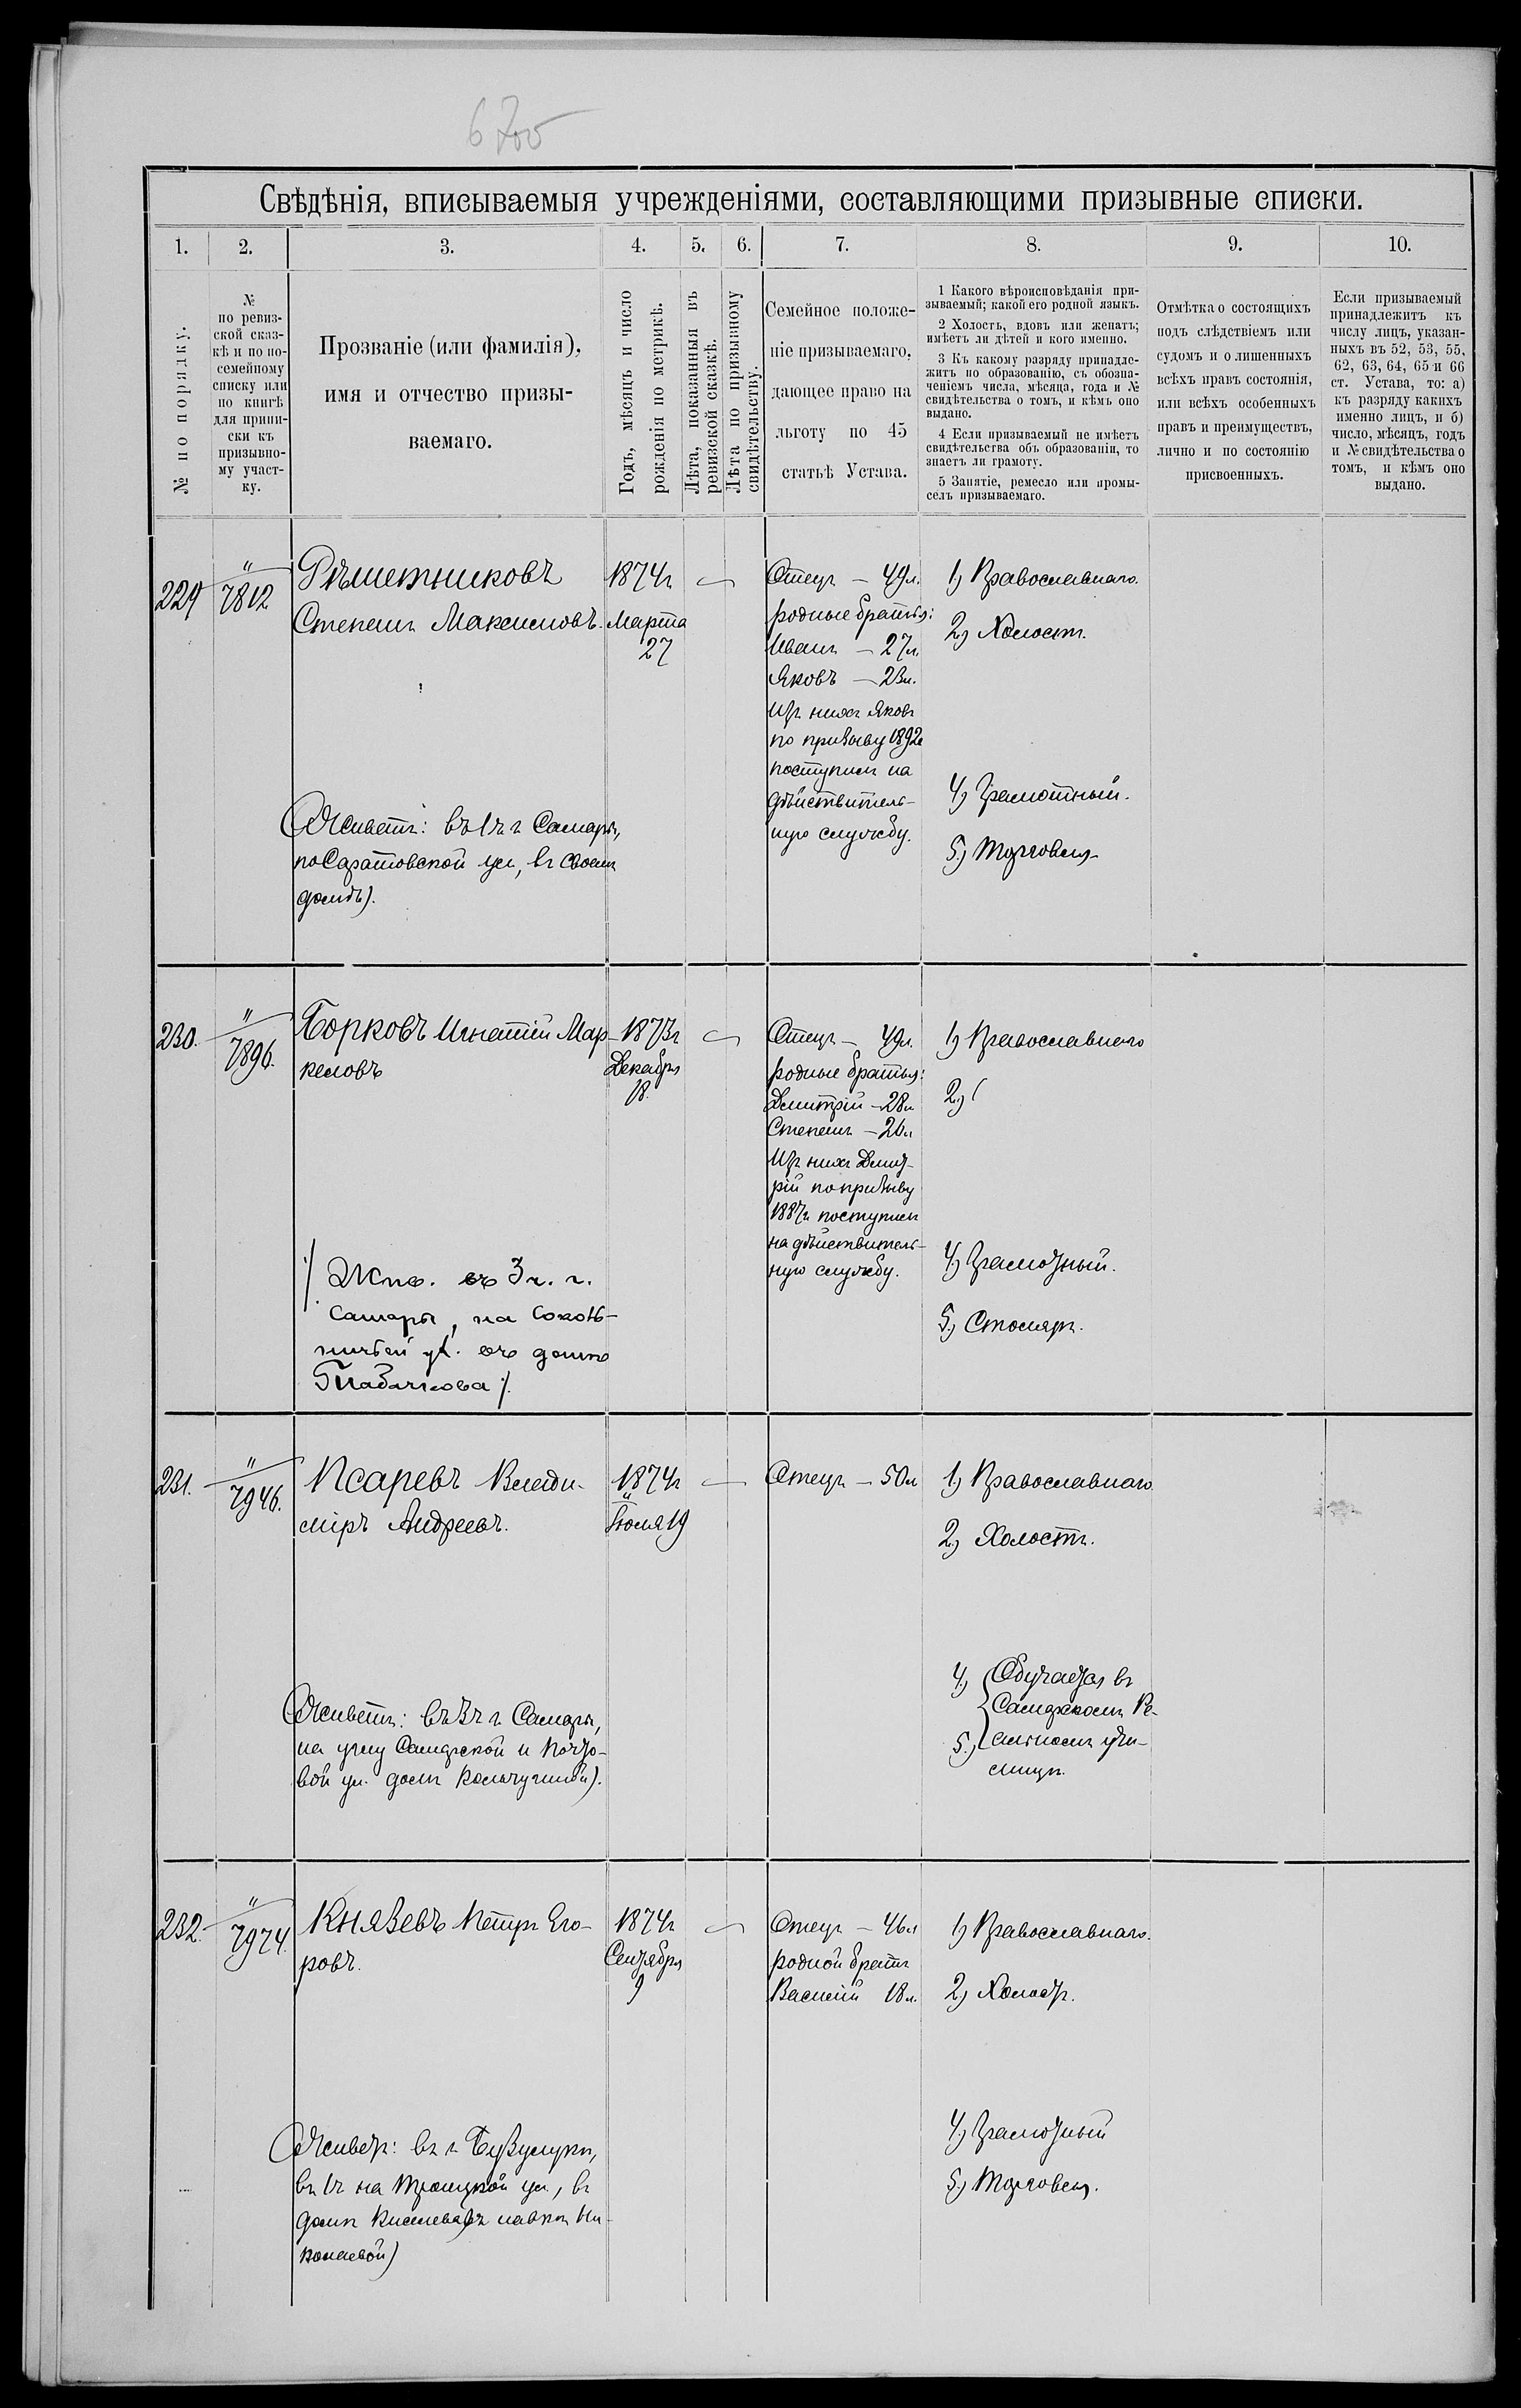 6700
Свѣдѣнія, вписываемыя учрежденіями, составляющими призывные списки.
1.
2.
3.
4.
5.
6.
7.
8.
9.
10.
№ по порядку.
№
по ревиз-
ской сказ-
кѣ и по по-
семейному
списку или
по книгѣ
для припи-
ски къ
призывно-
му участ-
ку.
Прозваніе (или фамилія),
имя и отчество призы-
ваемаго.
Годъ, мѣсяцъ и число
рожденія по метрикѣ.
Лѣта, показанныя въ
ревизской сказкѣ.
Лѣта по призывному
свидѣтельству.
Семейное положе-
ніе призываемаго,
дающее право на
льготу по 45
статьѣ Устава.
1 Какого вѣроисповѣданія при-
зываемый; какой его родной языкъ.
2 Холостъ, вдовъ или женатъ;
имѣетъ ли дѣтей и кого именно.
3 Къ какому разряду принадле-
житъ по образованію, съ обозна-
ченіемъ числа, мѣсяца, года и №
свидѣтельства о томъ, и кѣмъ оно
выдано.
4 Если призываемый не имѣетъ
свидѣтельства объ образованіи, то
знаетъ ли грамоту.
5 Занятіе, ремесло или промы-
селъ призываемаго.
Отмѣтка о состоящихъ
подъ слѣдствіемъ или
судомъ и о лишенныхъ
всѣхъ правъ состоянія,
или всѣхъ особенныхъ
правъ и преимуществъ,
лично и по состоянію
присвоенныхъ.
Если призываемый
принадлежитъ къ
числу лицъ, указан-
ныхъ въ 52, 53, 55,
62, 63, 64, 65 и 66
ст. Устава, то: а)
къ разряду какихъ
именно лицъ, и б)
число, мѣсяцъ, годъ
и № свидѣтельства о
томъ, и кѣмъ оно
выдано.
229
"
7812
Рѣшетниковъ
Степанъ Максимовъ.
1874 г
Марта
27
—
Отецъ — 49 л.
родные братья:
Иванъ — 27 л.
Яковъ — 23 л.
Изъ нихъ Яковъ
по призыву 1892 г
поступилъ на
дѣйствитель-
ную службу.
1) Православнаго.
2) Холостъ.
4) Грамотный.
5) Торговля
(Живетъ: въ 1 ч г Самары,
по Саратовской ул, въ своемъ
домѣ).
230.
"
7896.
Борковъ Игнатій Мар-
келовъ
1873 г
Декабря
18.
—
Отецъ — 49 л.
родные братья:
Дмитрій — 28 л
Степанъ — 26 л
Изъ нихъ Дмит-
рій по призыву
1887 г. поступилъ
на дѣйствитель-
ную службу.
1) Православнаго
2) (
4) Грамотный.
5) Столяръ.
/ Жив. въ 3 ч. г.
Самары, на Соколь-
ничьей ул. въ домѣ
Табачкова /.
231.
"
7946.
Псаревъ Влади-
міръ Андреевъ.
1874 г
Іюля 19
—
Отецъ — 50 л
1) Православнаго.
2) Холостъ.
4) Обучается въ
Самарскомъ Ре-
5) альномъ учи-
лищѣ.
(Живетъ: въ 3 ч г Самары,
на углу Самарской и Почто-
вой ул. домъ Кольчугиной).
232.
"
7974.
Князевъ Петръ Его-
ровъ.
1874 г
Сентября
9
—
Отецъ — 46 л
родной братъ
Василій 18 л.
1) Православнаго.
2) Холостъ.
4) Грамотный
5) Торговля.
(Живетъ: въ г Бузулукѣ,
въ 1 ч на Троицкой ул, въ
домѣ Киселева въ лавкѣ Ни-
колаевой)